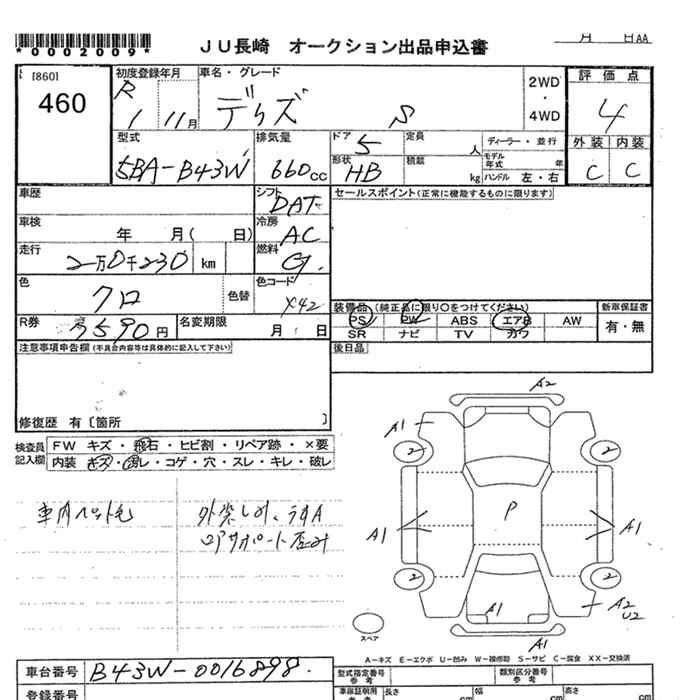 *0002009*
JU長崎 オークション出品申込書
月 日AA
[860]
460
初度登録年月
R 1 11月
車名・グレード
デイズ S
2WD
・
4WD
評価点
4
外装 内装
C C
型式
5BA-B43W
排気量
660cc
ドア 5
定員 人
形状 HB
積載 kg
ディーラー・並行
モデル年式 年
ハンドル 左・右
車歴
シフト DAT
セールスポイント(正常に機能するものに限ります)
車検 年 月( 日)
冷房 AC
走行 2万0千230 km
燃料 G.
色 クロ
色替
色コード X42
装備品(純正品に限り○をつけてください)
新車保証書
PS PW ABS エアB AW
有・無
SR ナビ TV カワ
R券 7590円
名変期限 月 日
注意事項申告欄(不具合内容等は具体的に記入して下さい)
後日品
修復歴 有〔箇所 〕
検査員記入欄
FW キズ・飛石・ヒビ割・リペア跡・×要
内装 キズ・汚レ・コゲ・穴・スレ・キレ・破レ
車内ペット毛
外装しみ、うすA
コアサポート歪み
A2
A1
2 2
P
A1 A1
2 2
A1
A2
U2
A1
スペア
A-キズ E-エクボ U-凹み W-補修跡 S-サビ C-腐食 XX-交換済
車台番号 B43W-0016898.
型式指定番号
参考
類別区分番号
参考
登録番号
車庫証明用
参考
長さ cm
幅 cm
高さ cm